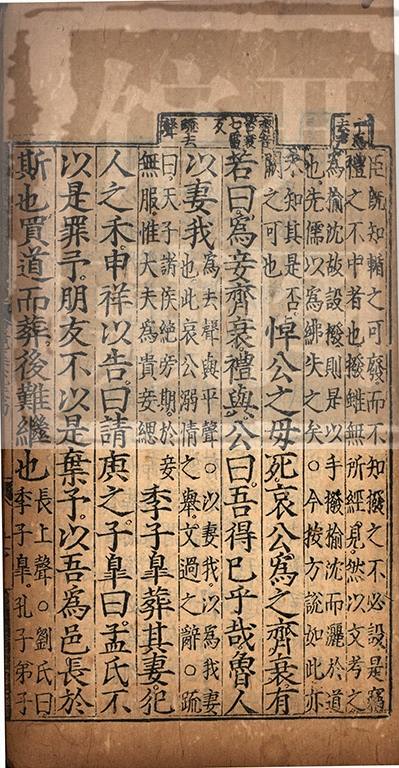 臣既知輴之可廢而不知撥之不必設是竊
禮之不中者也撥雖無所經見然以文考之
為榆沈故設撥則是以手撥榆沈而灑於道
也先儒以為紼失之矣○今按方說如此亦
未知其是否
闕之可也
悼公之母死哀公為之齊衰有
若曰為妾齊衰禮與公曰吾得已乎哉魯人
以妻我
為去聲與平聲○以妻我以為我妻
也此哀公溺情之舉文過之辭○疏
曰天子諸侯絕旁期於妾
無服惟大夫為貴妾緦
季子皐葬其妻犯
人之禾申祥以告曰請庚之子皐曰孟氏不
以是罪予朋友不以是棄予以吾為邑長於
斯也買道而葬後難繼也
長上聲○劉氏曰
季子皐孔子弟子